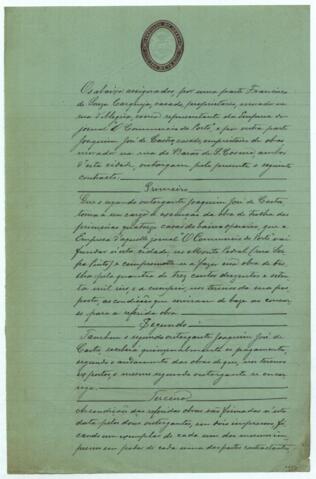 Os abaixo assignados, por uma parte Francisco
de Souza Carqueja, casado, proprietario, morador na
rua d'Alegria, como representante da Empresa do
jornal "O Commercio do Porto" e por outra parte
Joaquim José de Castro, casado, empreiteiro de obras
morador na rua do Barão de S. Cosme, ambos
d'esta cidade, outorgam pelo presente o seguinte
contracto:
Primeiro
Que o segundo outorgante Joaquim José de Castro
toma a seu cargo a execução da obra de trolha das
primeiras quatorze casas do bairro operario, que a
Empresa d'aquelle jornal "O Commercio do Porto" vai
fundar n'esta cidade, no Monte Pedral
e compromette-se a fazer essa obra de tro-
lha pela quantia de tres contos duzentos e setenta
mil reis e a cumprir, nos termos da sua pro-
posta, as condições que serviram de base ao concur-
so para a referida obra.
Segundo
Tambem o segundo outorgante Joaquim José de
Castro receberá quinzenalmente os pagamentos,
segundo o andamento das obras de que, nos termos
expostos, o mesmo segundo outorgante se encar-
rega.
Terceiro
As condições das referidas obras são firmadas n'esta
data pelos dous outorgantes, em dois impressos, fi-
cando um exemplar de cada um dos mesmos im-
pressos em poder de cada uma das partes contractantes,